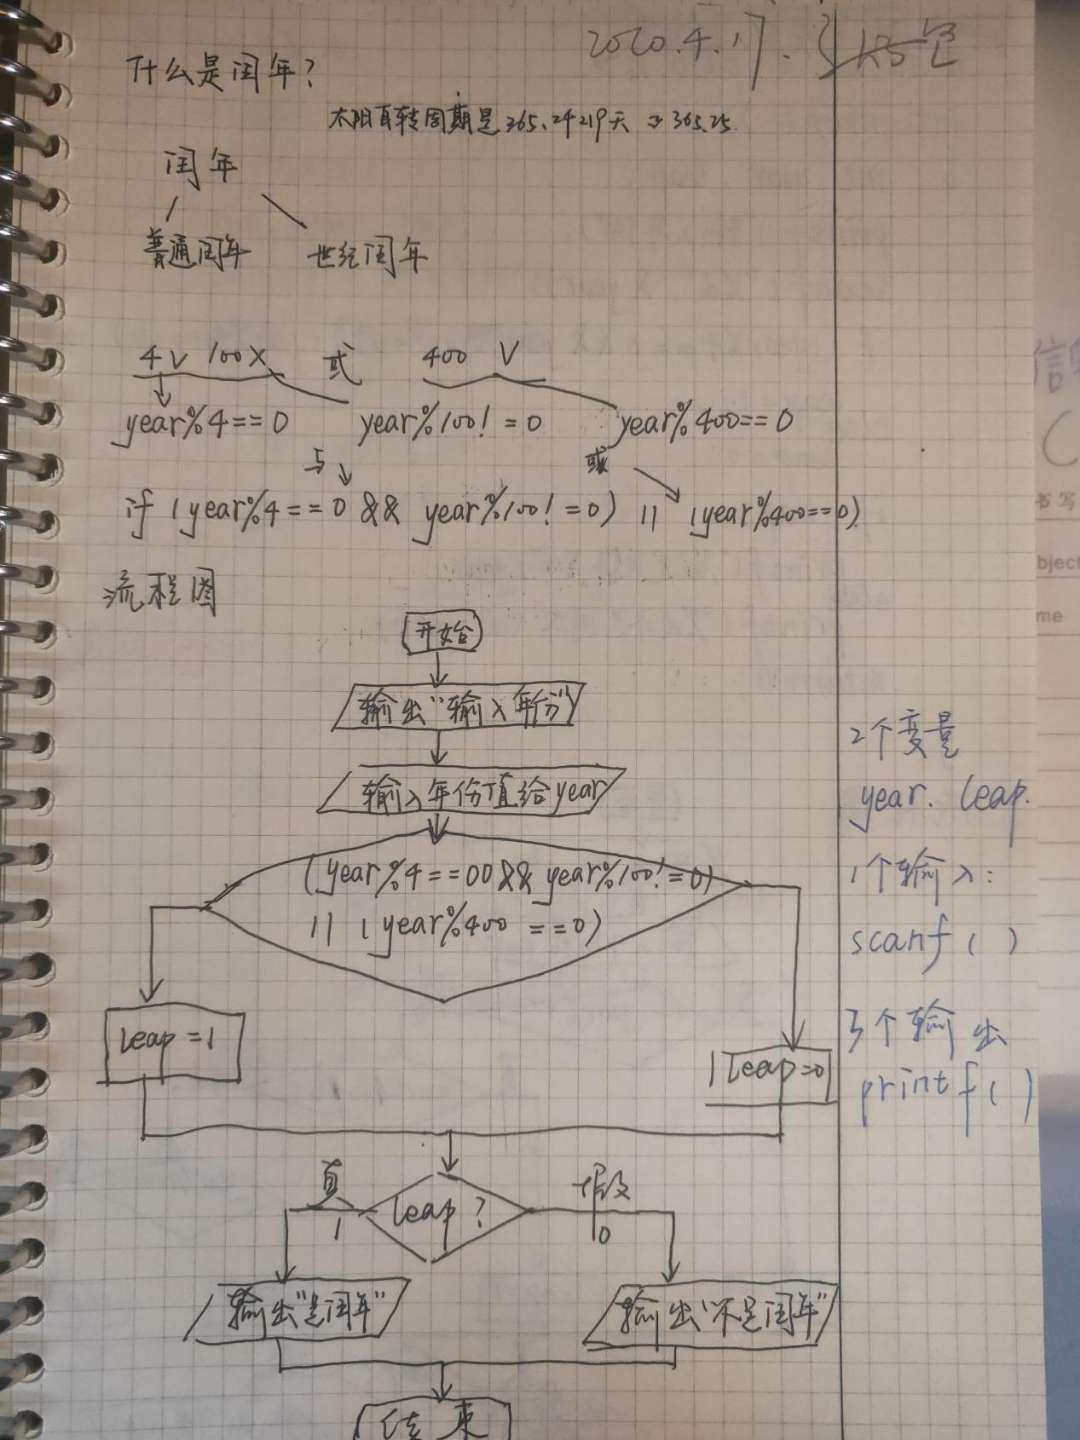 2020.4.17.
什么是闰年?
太阳自转周期是365.24219天 => 365.25.
闰年
普通闰年 世纪闰年
4 V 100 X 或 400 V
year%4==0 year%100!=0 year%400==0
与 或
if (year%4==0 && year%100!=0) || (year%400==0)
流程图
开始
输出"输入年份"
输入年份值给year
(year%4==00&&year%100!=0)
|| (year%400==0)
leap=1
leap=0
真 leap? 假
1 0
输出"是闰年" 输出"不是闰年"
结束
2个变量
year. leap.
1个输入:
scanf( )
3个输出
printf( )
书写
bject
me